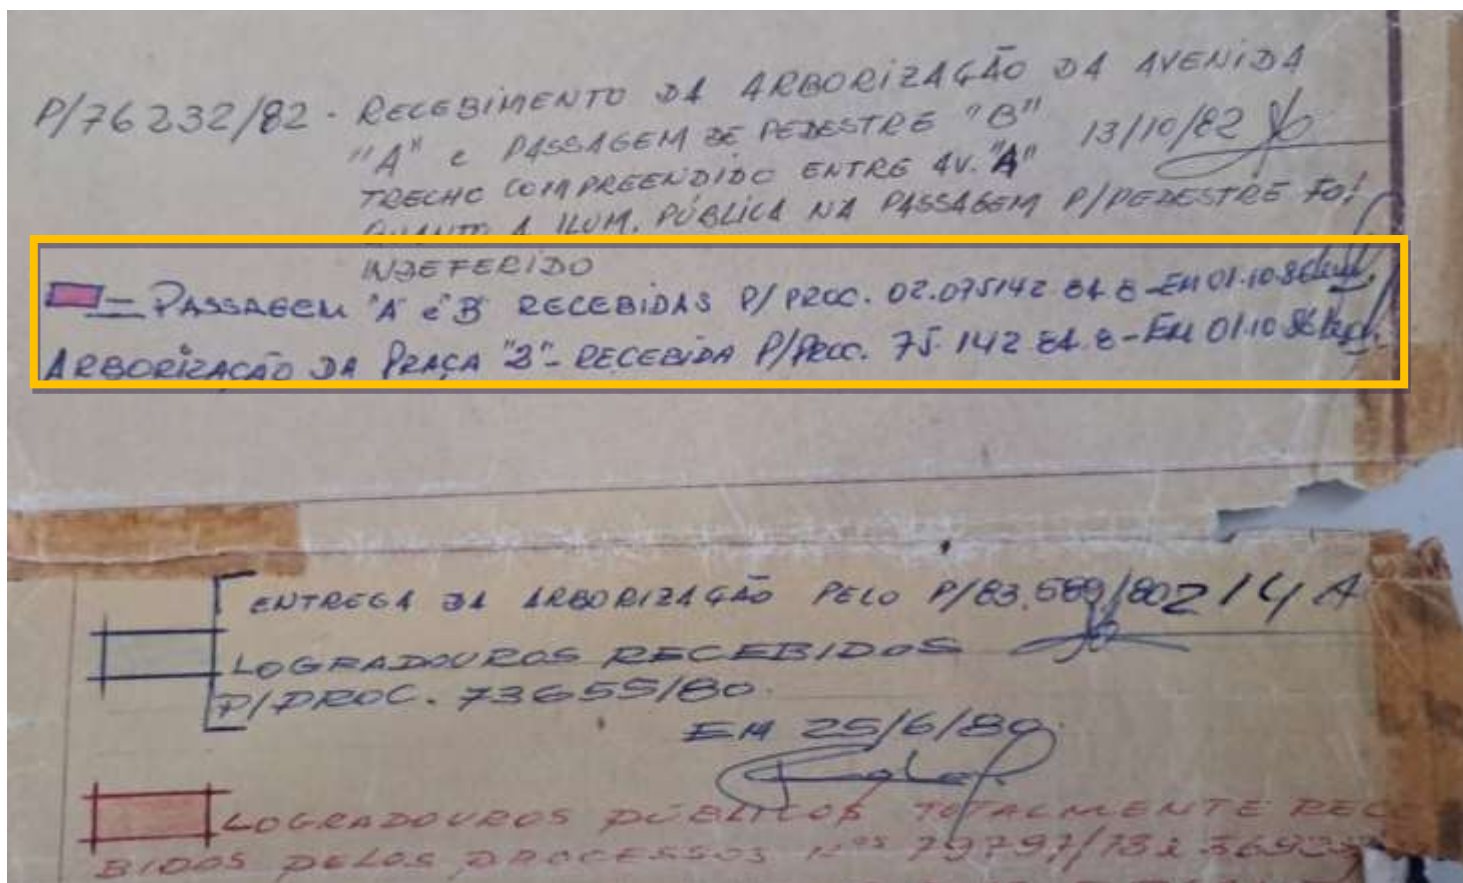 P/76232/82 - RECEBIMENTO DA ARBORIZAÇÃO DA AVENIDA
"A" e PASSAGEM DE PEDESTRE "B" 13/10/82
TRECHO COMPREENDIDO ENTRE AV. "A"
QUANTO A ILUM. PÚBLICA NA PASSAGEM P/PEDESTRE FOI
INDEFERIDO
PASSAGEM "A" e "B" RECEBIDAS P/ PROC. 02.075142 84.8 - EM 01.10.86
ARBORIZAÇÃO DA PRAÇA "B" - RECEBIDA P/PROC. 75.142 84.8 - EM 01.10.86
ENTREGA DA ARBORIZAÇÃO PELO P/83.589/80 214 A
LOGRADOUROS RECEBIDOS
P/PROC. 73655/80.
EM 25/6/80.
LOGRADOUROS PÚBLICOS TOTALMENTE RECE
BIDOS PELOS PROCESSOS Nºs 79797/78